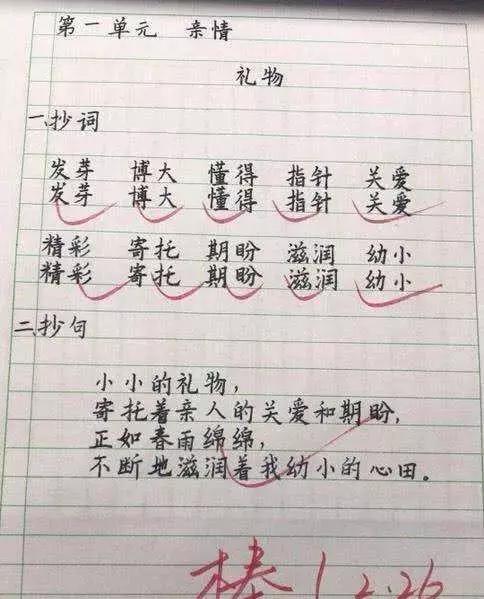 第一单元 亲情
礼物
一.抄词
发芽 博大 懂得 指针 关爱
发芽 博大 懂得 指针 关爱
精彩 寄托 期盼 滋润 幼小
精彩 寄托 期盼 滋润 幼小
二.抄句
小小的礼物，
寄托着亲人的关爱和期盼，
正如春雨绵绵，
不断地滋润着我幼小的心田。
棒！2.26